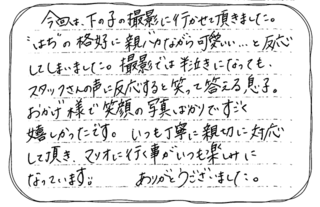 今回は、下の子の撮影に行かせて頂きました。
"はち"の格好に親バカながら可愛い…と反応
してしまいました。撮影では半泣きになっても、
スタッフさんの声に反応すると笑って答える息子。
おかげ様で笑顔の写真ばかりですごく
嬉しかったです。いつも丁寧に親切に対応
して頂き、マリオに行く事がいつも楽しみに
なっています。　ありがとうございました。